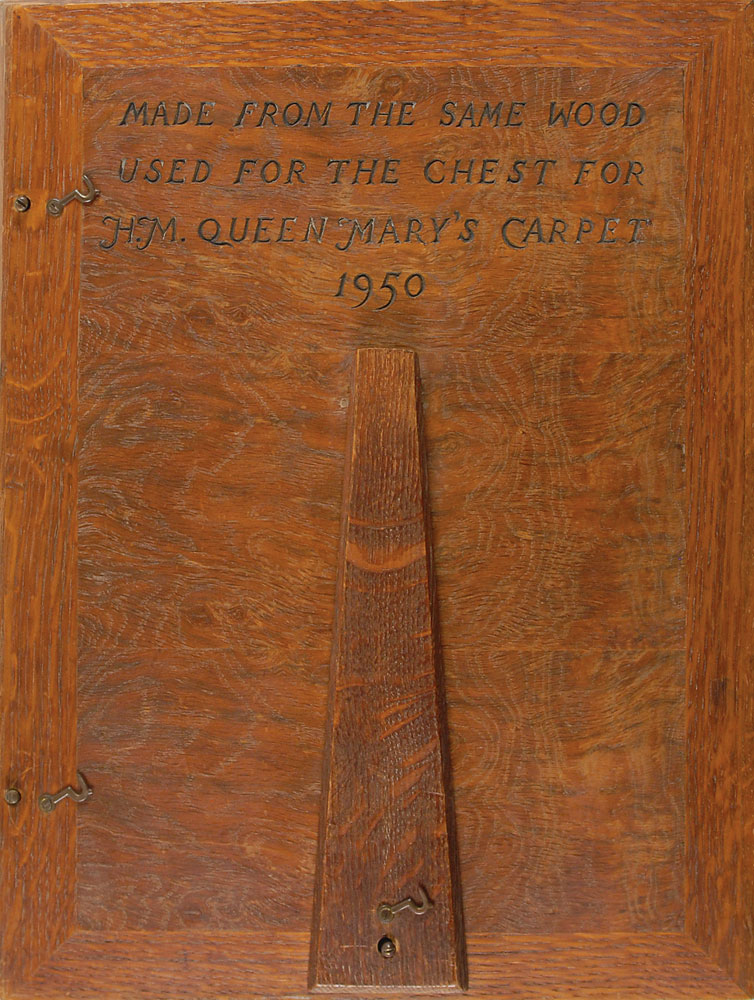 MADE FROM THE SAME WOOD
USED FOR THE CHEST FOR
H.M. QUEEN MARY'S CARPET
1950